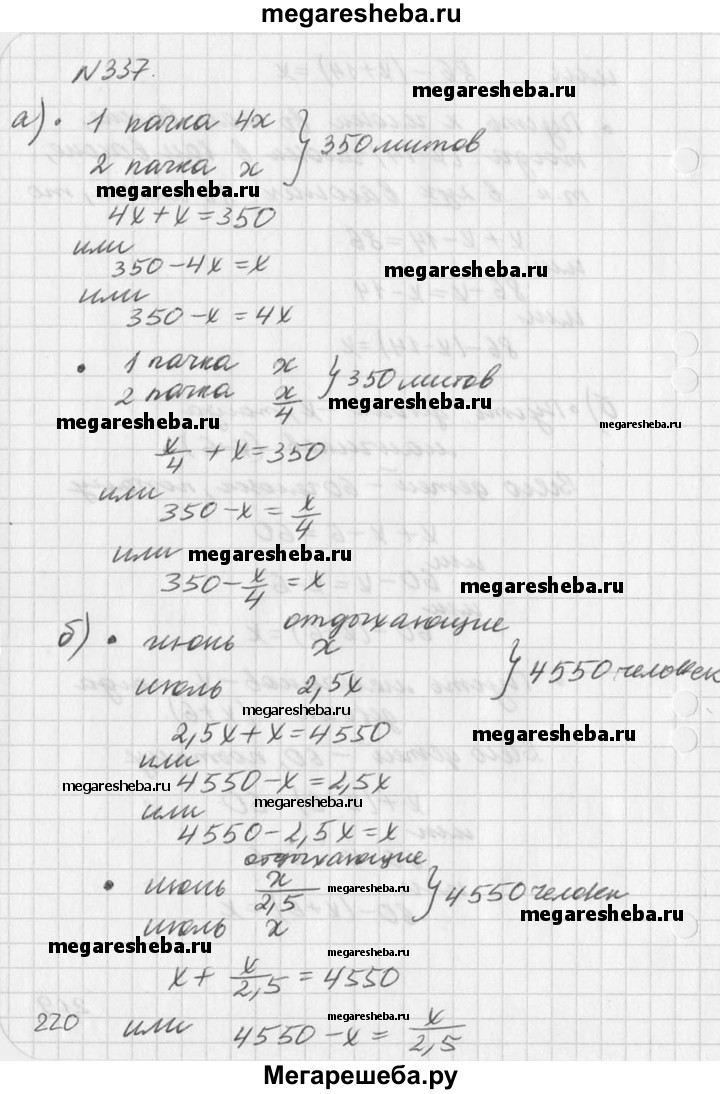 megaresheba.ru
N 337.
megaresheba.ru
а) • 1 пачка 4х } 350 листов
2 пачка х
megaresheba.ru
4х + х = 350
или
350 - 4х = х
megaresheba.ru
или
350 - х = 4х
• 1 пачка х } 350 листов
2 пачка х/4
megaresheba.ru
megaresheba.ru
megaresheba.ru
х/4 + х = 350
или
350 - х = х/4
или
megaresheba.ru
350 - х/4 = х
megaresheba.ru
отдыхающие
б) • июнь х } 4550 человек
июль 2,5х
megaresheba.ru
2,5х + х = 4550
megaresheba.ru
или
megaresheba.ru
4550 - х = 2,5х
megaresheba.ru
или
4550 - 2,5х = х
отдыхающие
• июнь х/2,5 } 4550 человек
megaresheba.ru
megaresheba.ru
июль х
megaresheba.ru
megaresheba.ru
х + х/2,5 = 4550
megaresheba.ru
220 или 4550 - х = х/2,5
Мегарешеба.ру